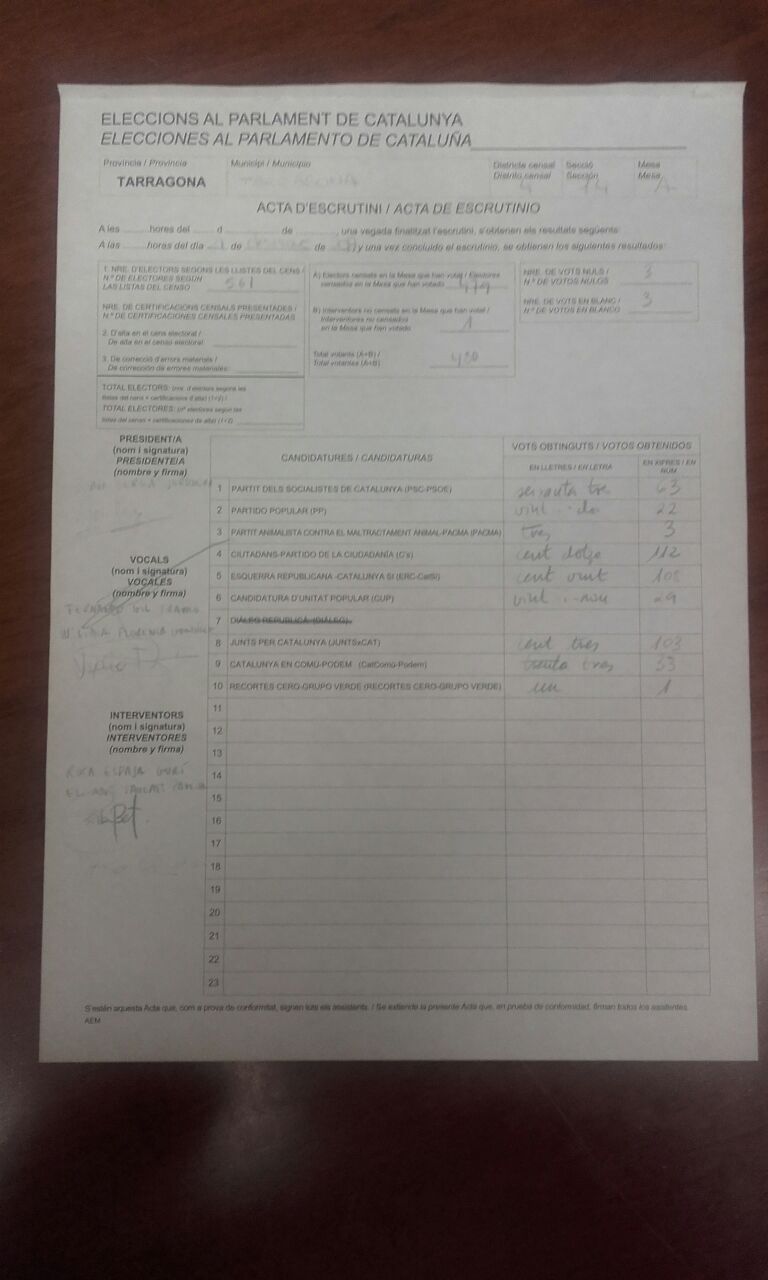 ELECCIONS AL PARLAMENT DE CATALUNYA
ELECCIONES AL PARLAMENTO DE CATALUÑA
Província / Provincia Municipi / Municipio Districte censal Secció Mesa
Distrito censal Sección Mesa
TARRAGONA 4 14 A
ACTA D'ESCRUTINI / ACTA DE ESCRUTINIO
A les hores del d de , una vegada finalitzat l'escrutini, s'obtenen els resultats següents:
A las horas del día 21 de de y una vez concluido el escrutinio, se obtienen los siguientes resultados:
1. NRE. D'ELECTORS SEGONS LES LLISTES DEL CENS /
N.º DE ELECTORES SEGÚN
LAS LISTAS DEL CENSO 561
NRE. DE CERTIFICACIONS CENSALS PRESENTADES /
N.º DE CERTIFICACIONES CENSALES PRESENTADAS
2. D'alta en el cens electoral /
De alta en el censo electoral:
3. De correcció d'errors materials /
De corrección de errores materiales:
TOTAL ELECTORS: (nre. d'electors segons les
llistes del cens + certificacions d'alta) (1+2) /
TOTAL ELECTORES: (nº electores según las
listas del censo + certificaciones de alta) (1+2)
A) Electors censats en la Mesa que han votat / Electores
censados en la Mesa que han votado 479
B) Interventors no censats en la Mesa que han votat /
Interventores no censados
en la Mesa que han votado 1
Total votants (A+B) /
Total votantes (A+B) 480
NRE. DE VOTS NULS /
N.º DE VOTOS NULOS 3
NRE. DE VOTS EN BLANC /
N.º DE VOTOS EN BLANCO 3
PRESIDENT/A
(nom i signatura)
PRESIDENTE/A
(nombre y firma)
VOCALS
(nom i signatura)
VOCALES
(nombre y firma)
FERNANDO GIL
INTERVENTORS
(nom i signatura)
INTERVENTORES
(nombre y firma)
CANDIDATURES / CANDIDATURAS VOTS OBTINGUTS / VOTOS OBTENIDOS
EN LLETRES / EN LETRA EN XIFRES / EN NÚM.
1 PARTIT DELS SOCIALISTES DE CATALUNYA (PSC-PSOE) seixanta tres 63
2 PARTIDO POPULAR (PP) vint-i-dos 22
3 PARTIT ANIMALISTA CONTRA EL MALTRACTAMENT ANIMAL-PACMA (PACMA) tres 3
4 CIUTADANS-PARTIDO DE LA CIUDADANÍA (C's) cent dotze 112
5 ESQUERRA REPUBLICANA-CATALUNYA SÍ (ERC-CatSí) cent vuit 108
6 CANDIDATURA D'UNITAT POPULAR (CUP) vint-i-nou 29
7 DIÀLEG REPUBLICÀ (DIÀLEG)
8 JUNTS PER CATALUNYA (JUNTSxCAT) cent tres 103
9 CATALUNYA EN COMÚ-PODEM (CatComú-Podem) trenta tres 33
10 RECORTES CERO-GRUPO VERDE (RECORTES CERO-GRUPO VERDE) un 1
11
12
13
14
15
16
17
18
19
20
21
22
23
S'estén aquesta Acta que, com a prova de conformitat, signen tots els assistents. / Se extiende la presente Acta que, en prueba de conformidad, firman todos los asistentes.
AEM